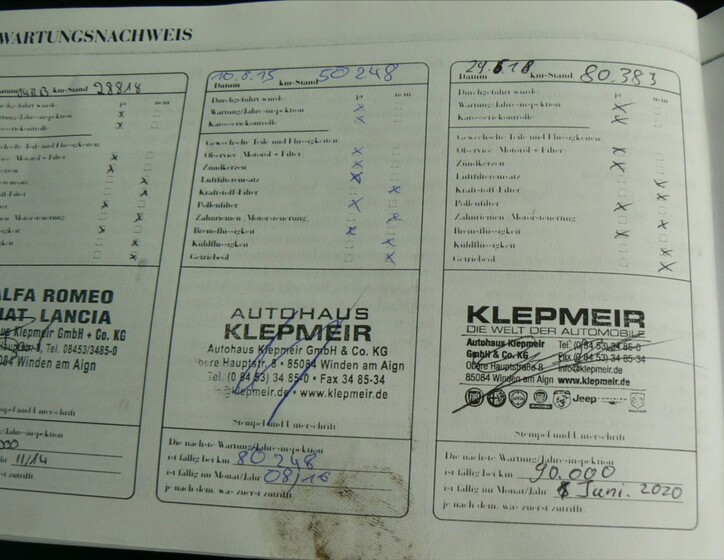 WARTUNGSNACHWEIS
km-Stand 28818
Durchgeführt wurde: ja nein
ALFA ROMEO
FIAT LANCIA
Klepmeir GmbH + Co. KG
Tel. 08453/3485-0
Winden am Aign
Stempel und Unterschrift
11/14
was zuerst zutrifft.
10.8.15 50248
Datum km-Stand
Durchgeführt wurde: ja nein
Wartung/Jahres-inspektion
Karosseriekontrolle
Gewechselte Teile und Flüssigkeiten:
Ölservice (Motoröl + Filter)
Zündkerzen
Luftfiltereinsatz
Kraftstoff-Filter
Pollenfilter
Zahnriemen (Motorsteuerung)
Bremsflüssigkeit
Kühlflüssigkeit
Getriebeöl
AUTOHAUS
KLEPMEIR
Autohaus Klepmeir GmbH & Co. KG
Obere Hauptstr. 8 • 85084 Winden am Aign
Tel. (0 84 53) 34 85-0 • Fax 34 85-34
klepmeir.de • www.klepmeir.de
Stempel und Unterschrift
Die nächste Wartung/Jahres-inspektion
ist fällig bei km 80248
ist fällig im Monat/Jahr 08/16
je nach dem, was zuerst zutrifft.
29.6.18 80.383
Datum km-Stand
Durchgeführt wurde: ja nein
Wartung/Jahres-inspektion
Karosseriekontrolle
Gewechselte Teile und Flüssigkeiten:
Ölservice (Motoröl + Filter)
Zündkerzen
Luftfiltereinsatz
Kraftstoff-Filter
Pollenfilter
Zahnriemen (Motorsteuerung)
Bremsflüssigkeit
Kühlflüssigkeit
Getriebeöl
KLEPMEIR
DIE WELT DER AUTOMOBILE
Autohaus Klepmeir Tel. (0 84 53) 34 85-0
GmbH & Co. KG Fax (0 84 53) 34 85-34
Obere Hauptstraße 8 info@klepmeir.de
85084 Winden am Aign www.klepmeir.de
Jeep
Stempel und Unterschrift
Die nächste Wartung/Jahres-inspektion
ist fällig bei km 90.000
ist fällig im Monat/Jahr Juni. 2020
je nach dem, was zuerst zutrifft.